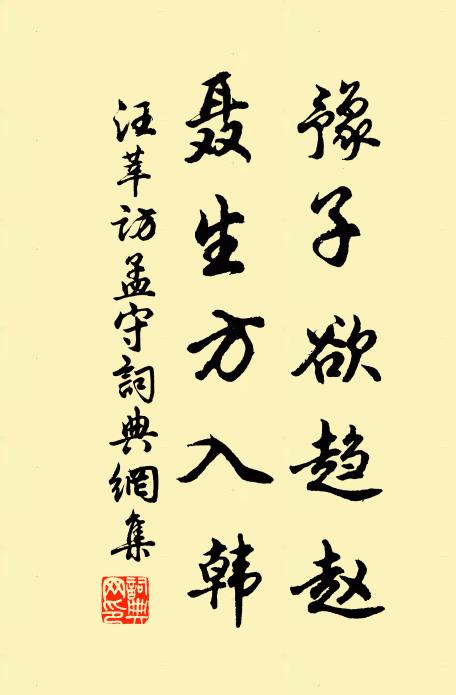 豫子欲趋赵
聂生方入韩
汪莘访孟守詞典網集
詞典
网印